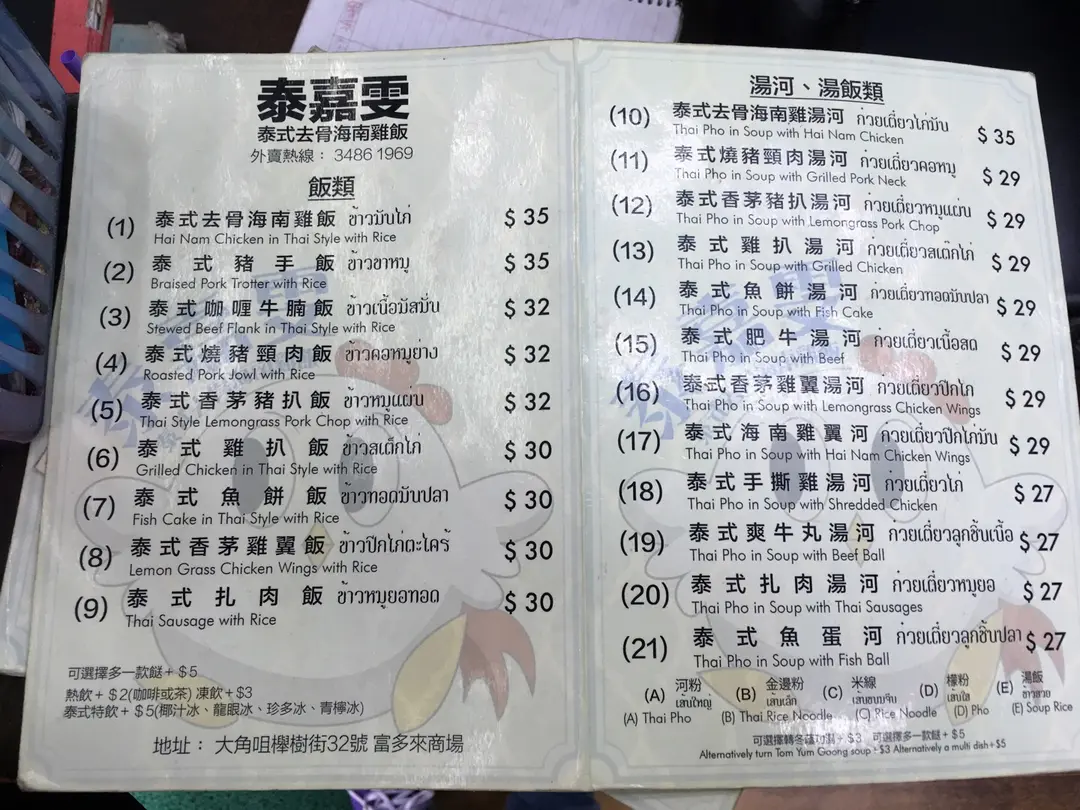 泰嘉雯
泰式去骨海南雞飯
外賣熱線： 3486 1969
飯類
(1) 泰式去骨海南雞飯 ข้าวมันไก่ $ 35
Hai Nam Chicken in Thai Style with Rice
(2) 泰式豬手飯 ข้าวขาหมู $ 35
Braised Pork Trotter with Rice
(3) 泰式咖喱牛腩飯 ข้าวเนื้อมัสมั่น $ 32
Stewed Beef Flank in Thai Style with Rice
(4) 泰式燒豬頸肉飯 ข้าวคอหมูย่าง $ 32
Roasted Pork Jowl with Rice
(5) 泰式香茅豬扒飯 ข้าวหมูแผ่น $ 32
Thai Style Lemongrass Pork Chop with Rice
(6) 泰式雞扒飯 ข้าวสเต็กไก่ $ 30
Grilled Chicken in Thai Style with Rice
(7) 泰式魚餅飯 ข้าวทอดมันปลา $ 30
Fish Cake in Thai Style with Rice
(8) 泰式香茅雞翼飯 ข้าวปีกไก่ตะไคร้ $ 30
Lemon Grass Chicken Wings with Rice
(9) 泰式扎肉飯 ข้าวหมูยอทอด $ 30
Thai Sausage with Rice
可選擇多一款餸+ $5
熱飲+ $2(咖啡或茶) 凍飲+$3
泰式特飲+ $5(椰汁冰、龍眼冰、珍多冰、青檸冰)
地址： 大角咀櫸樹街32號 富多來商場
湯河、湯飯類
(10) 泰式去骨海南雞湯河 ก๋วยเตี๋ยวไก่มัน $ 35
Thai Pho in Soup with Hai Nam Chicken
(11) 泰式燒豬頸肉湯河 ก๋วยเตี๋ยวคอหมู $ 29
Thai Pho in Soup with Grilled Pork Neck
(12) 泰式香茅豬扒湯河 ก๋วยเตี๋ยวหมูแผ่น $ 29
Thai Pho in Soup with Lemongrass Pork Chop
(13) 泰式雞扒湯河 ก๋วยเตี๋ยวสเต๊กไก่ $ 29
Thai Pho in Soup with Grilled Chicken
(14) 泰式魚餅湯河 ก๋วยเตี๋ยวทอดมันปลา $ 29
Thai Pho in Soup with Fish Cake
(15) 泰式肥牛湯河 ก๋วยเตี๋ยวเนื้อสด $ 29
Thai Pho in Soup with Beef
(16) 泰式香茅雞翼湯河 ก๋วยเตี๋ยวปีกไก $ 29
Thai Pho in Soup with Lemongrass Chicken Wings
(17) 泰式海南雞翼河 ก๋วยเตี๋ยวปีกไก่มัน $ 29
Thai Pho in Soup with Hai Nam Chicken Wings
(18) 泰式手撕雞湯河 ก๋วยเตี๋ยวไก่ $ 27
Thai Pho in Soup with Shredded Chicken
(19) 泰式爽牛丸湯河 ก๋วยเตี๋ยวลูกชิ้นเนื้อ $ 27
Thai Pho in Soup with Beef Ball
(20) 泰式扎肉湯河 ก๋วยเตี๋ยวหมูยอ $ 27
Thai Pho in Soup with Thai Sausages
(21) 泰式魚蛋河 ก๋วยเตี๋ยวลูกชิ้นปลา $ 27
Thai Pho in Soup with Fish Ball
(A) 河粉 (B) 金邊粉 (C) 米線 (D) 檬粉 (E) 湯飯
เส้นใหญ่ เส้นเล็ก เส้นขนมจีน เส้นใส ข้าวสวย
(A) Thai Pho (B) Thai Rice Noodle (C) Rice Noodle (D) Pho (E) Soup Rice
可選擇轉冬蔭功湯+ $3 可選擇多一款餸+ $5
Alternatively turn Tom Yum Goong soup+$3 Alternatively a multi dish+$5